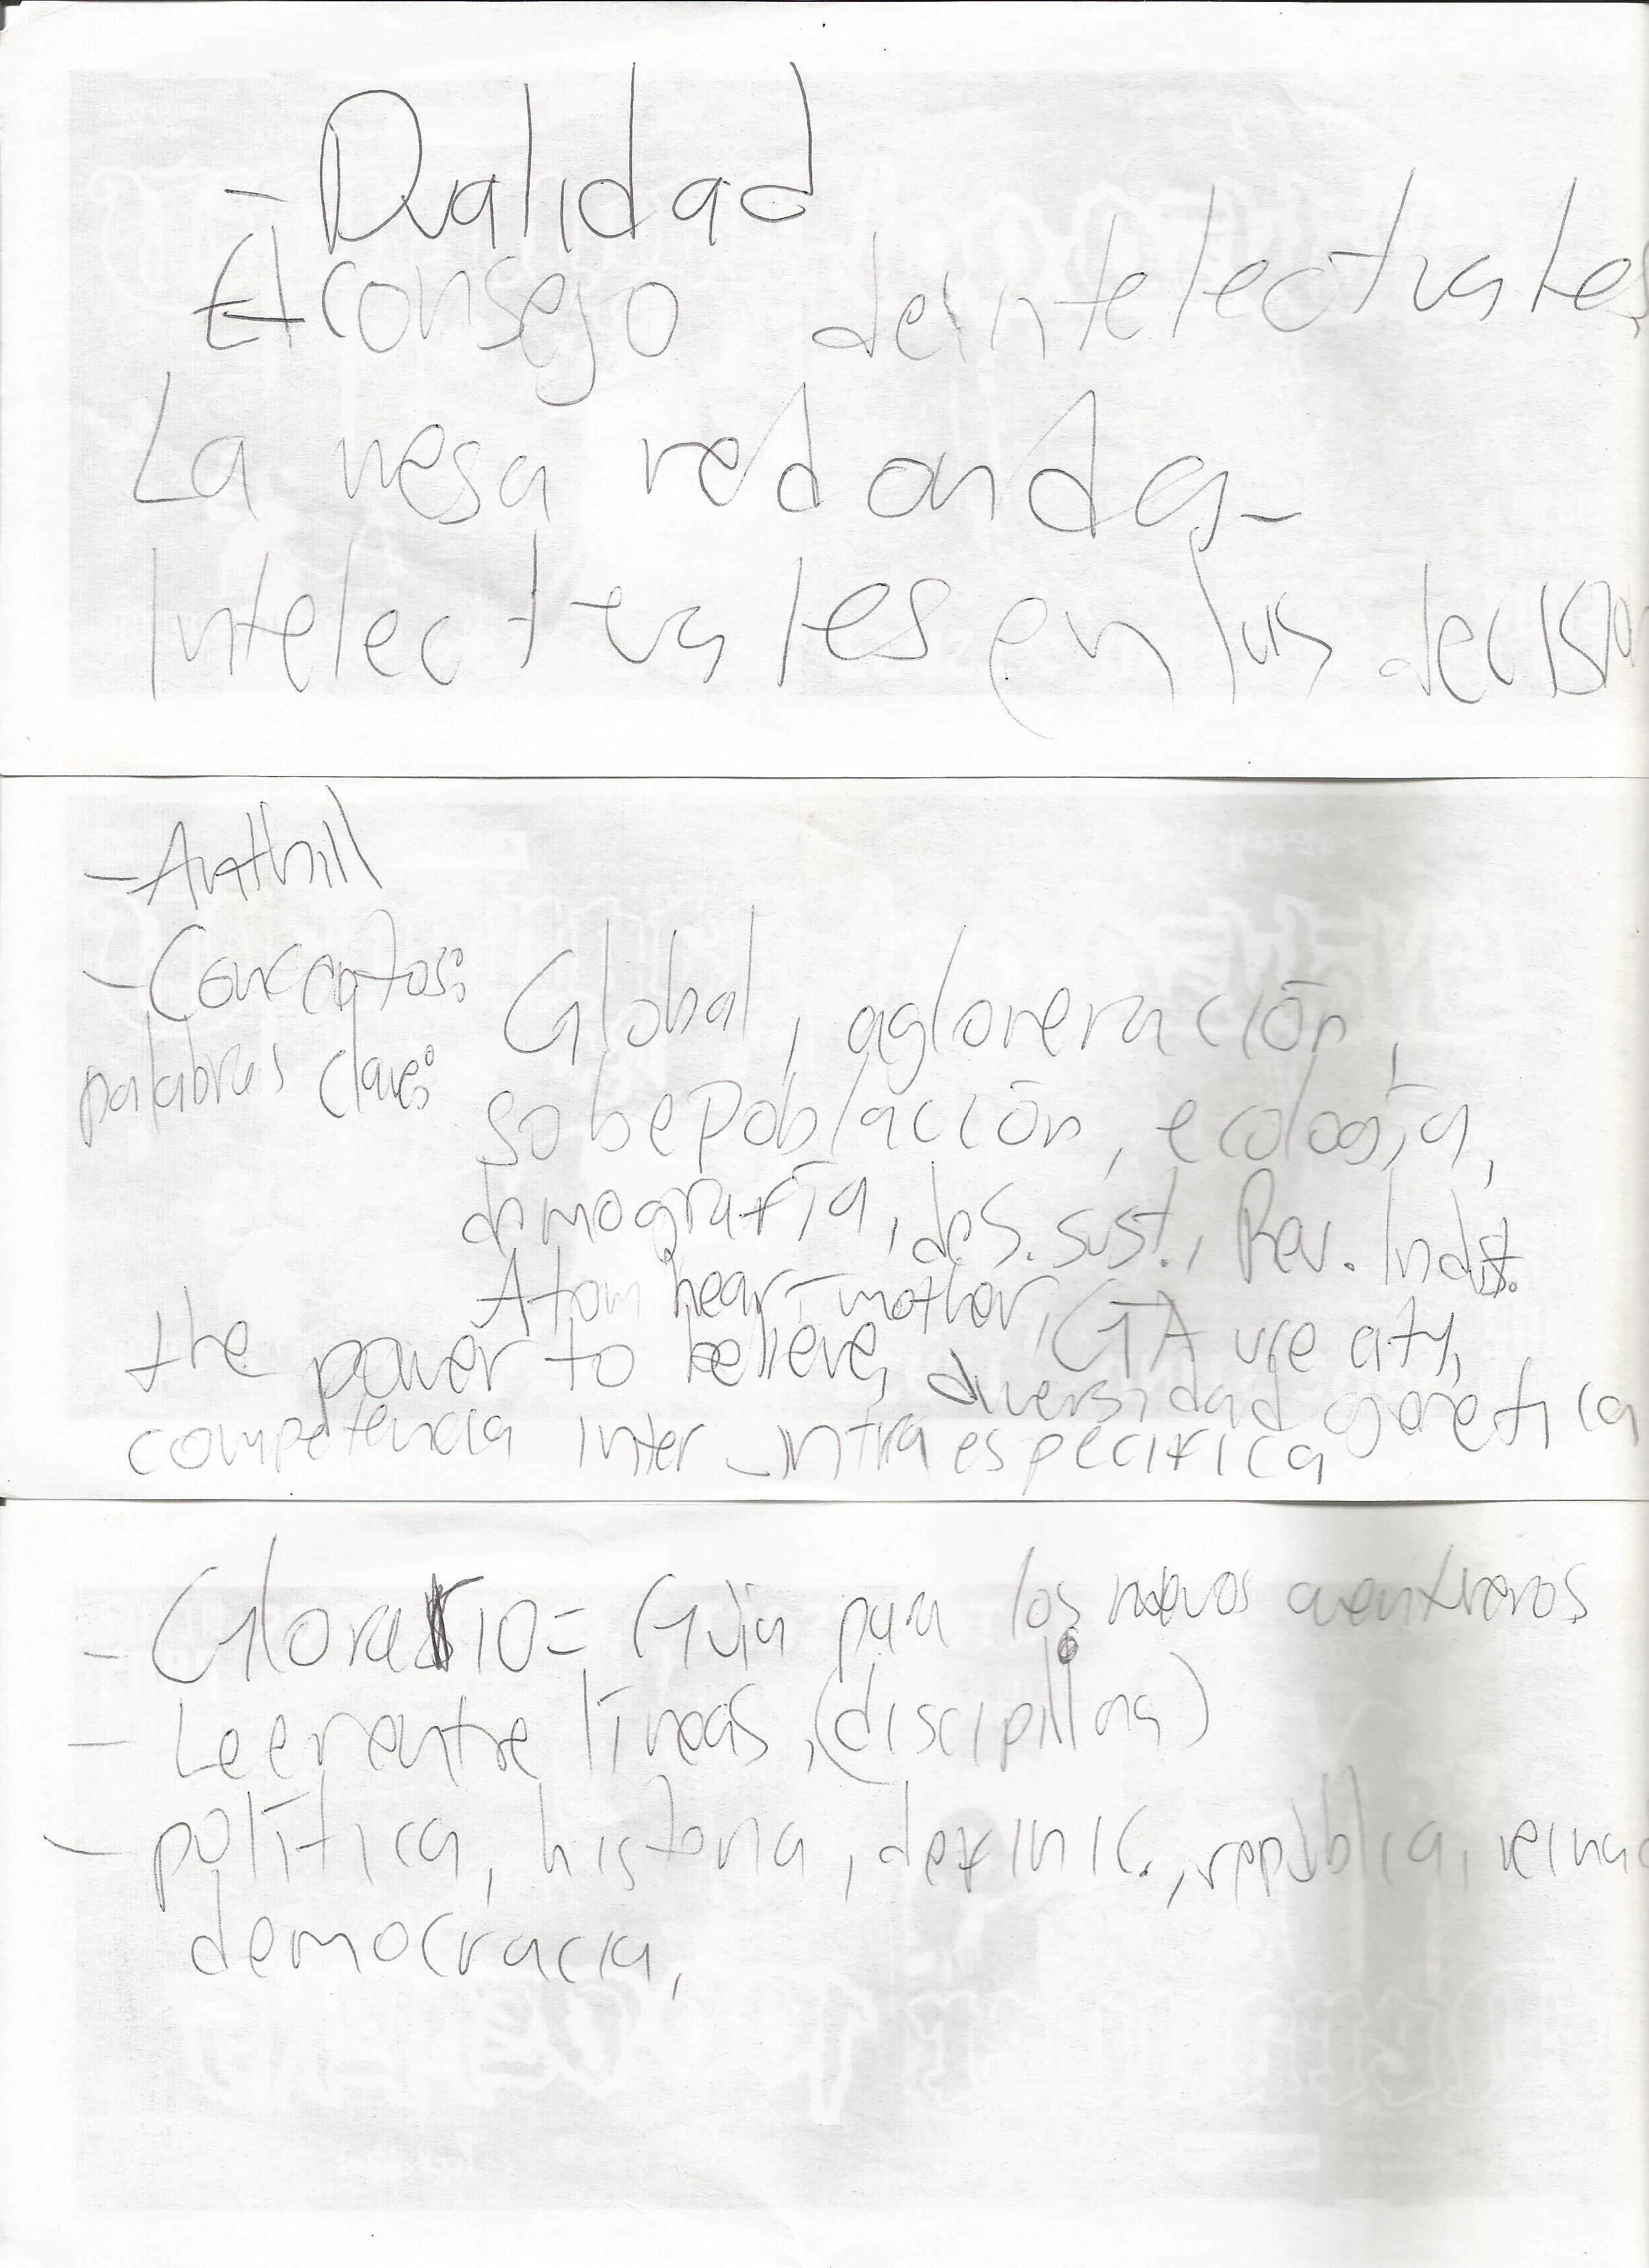 - Dualidad
El consejo de intelectuales
La mesa redonda -
Intelectuales en las decisio
- Anthill
- Conceptos:
palabras claves: Global, aglomeración,
sobepoblación, ecología,
demografía, des. sust., Rev. Indust.
Atom heart mother, GTA vice city,
the power to believe, diversidad genetica
competencia inter - intra especifica
- Glorario = Guía para los nuevos aventureros
- Leer entre líneas, (discipillos)
- política, historia, definic., república, reinad
democracia,